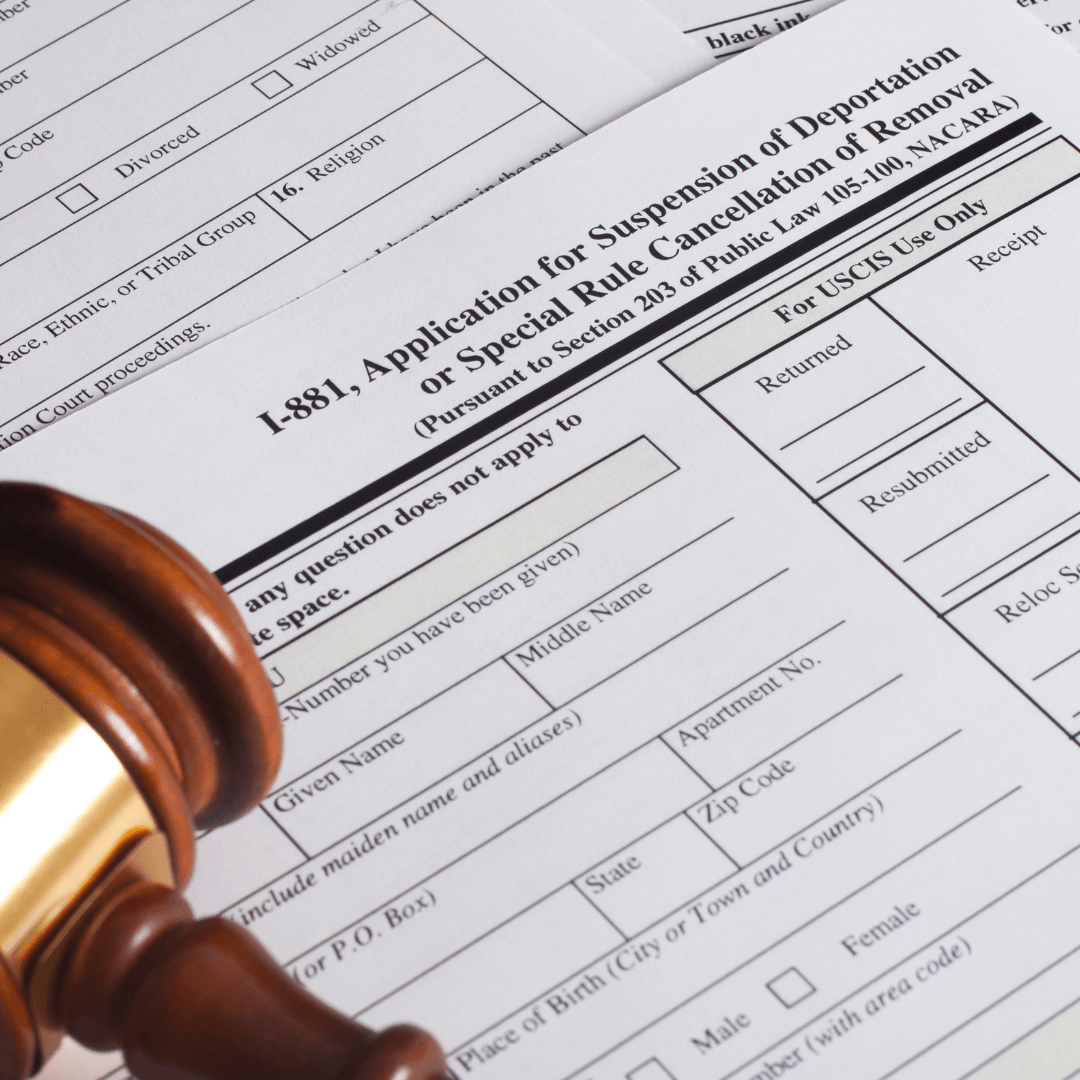 Widowed
Code
Divorced
16. Religion
Race, Ethnic, or Tribal Group
Court proceedings.
black ink
in the past
I-881, Application for Suspension of Deportation
or Special Rule Cancellation of Removal
(Pursuant to Section 203 of Public Law 105-100, NACARA)
any question does not apply to
space.
For USCIS Use Only
Returned
Receipt
Resubmitted
Reloc
-Number you have been given)
Given Name
Middle Name
(include maiden name and aliases)
(or P.O. Box)
Apartment No.
State
Zip Code
Place of Birth (City or Town and Country)
Male
Female
(with area code)